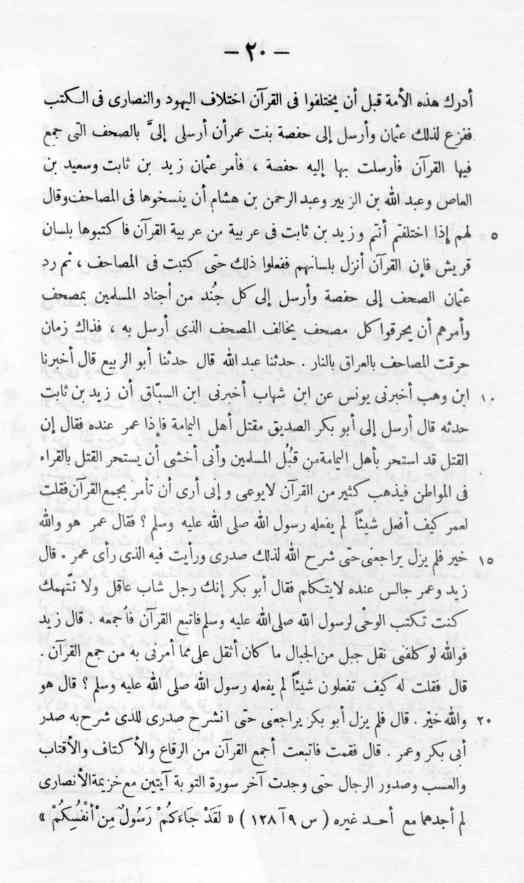 — ٢٠ —
أدرك هذه الأمة قبل أن يختلفوا فى القرآن اختلاف اليهود والنصارى فى الكتب
ففزع لذلك عثمان وأرسل إلى حفصة بنت عمر أن أرسلى إلىَّ بالصحف التى جمع
فيها القرآن فأرسلت بها إليه حفصة ، فأمر عثمان زيد بن ثابت وسعيد بن
العاص وعبد الله بن الزبير وعبد الرحمن بن هشام أن ينسخوها فى المصاحف وقال
٥ لهم إذا اختلفتم أنتم وزيد بن ثابت فى عربية من عربية القرآن فاكتبوها بلسان
قريش فإن القرآن أنزل بلسانهم ففعلوا ذلك حتى كتبت فى المصاحف ، ثم رد
عثمان الصحف إلى حفصة وأرسل إلى كل جُند من أجناد المسلمين بمصحف
وأمرهم أن يحرقوا كل مصحف يخالف المصحف الذى أرسل به ، فذاك زمان
حرقت المصاحف بالعراق بالنار . حدثنا عبد الله قال حدثنا أبو الربيع قال أخبرنا
١٠ ابن وهب أخبرنى يونس عن ابن شهاب أخبرنى ابن السبّاق أن زيد بن ثابت
حدثه قال أرسل إلى أبو بكر الصديق مقتل أهل اليمامة فإذا عمر عنده فقال إن
القتل قد استحر بأهل اليمامة من قُبُل المسلمين وأنى أخشى أن يستحر القتل بالقراء
فى المواطن فيذهب كثير من القرآن لا يوعى و إنى أرى أن تأمر بجمع القرآن فقلت
لعمر كيف أفعل شيئاً لم يفعله رسول الله صلى الله عليه وسلم ؟ فقال عمر هو والله
١٥ خير فلم يزل يراجعنى حتى شرح الله لذلك صدرى ورأيت فيه الذى رأى عمر . قال
زيد وعمر جالس عنده لا يتكلم فقال أبو بكر إنك رجل شاب عاقل ولا نتهمك
كنت تكتب الوحى لرسول الله صلى الله عليه وسلم فاتبع القرآن فاجمعه . قال زيد
فوالله لو كلفنى نقل جبل من الجبال ما كان أثقل على مما أمرنى به من جمع القرآن .
قال فقلت له كيف تفعلون شيئاً لم يفعله رسول الله صلى الله عليه وسلم ؟ قال هو
٢٠ والله خيْر . قال فلم يزل أبو بكر يراجعنى حتى انشرح صدرى للذى شرح به صدر
أبى بكر وعمر . قال فقمت فاتبعت أجمع القرآن من الرقاع والأكتاف والأقتاب
والعسب وصدور الرجال حتى وجدت آخر سورة التوبة آيتين مع خزيمة الأنصارى
لم أجدهما مع أحد غيره ( س ٩ آ ١٢٨ ) « لَقَدْ جَاءَكُمْ رَسُولٌ مِنْ أَنْفُسِكُمْ »